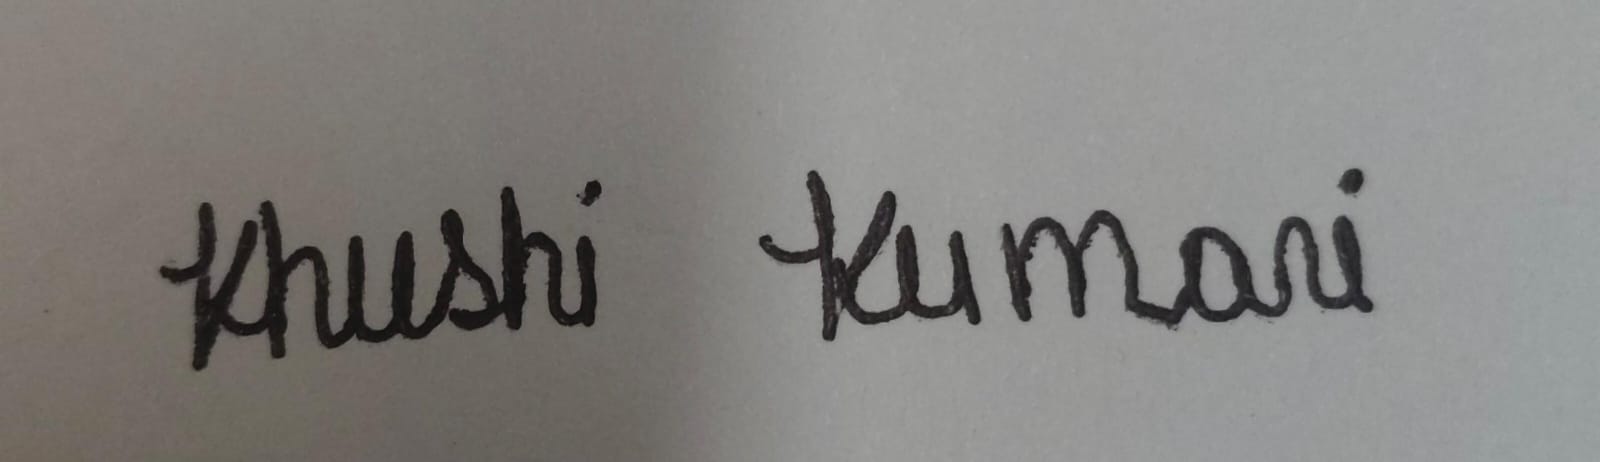 Khushi Kumari